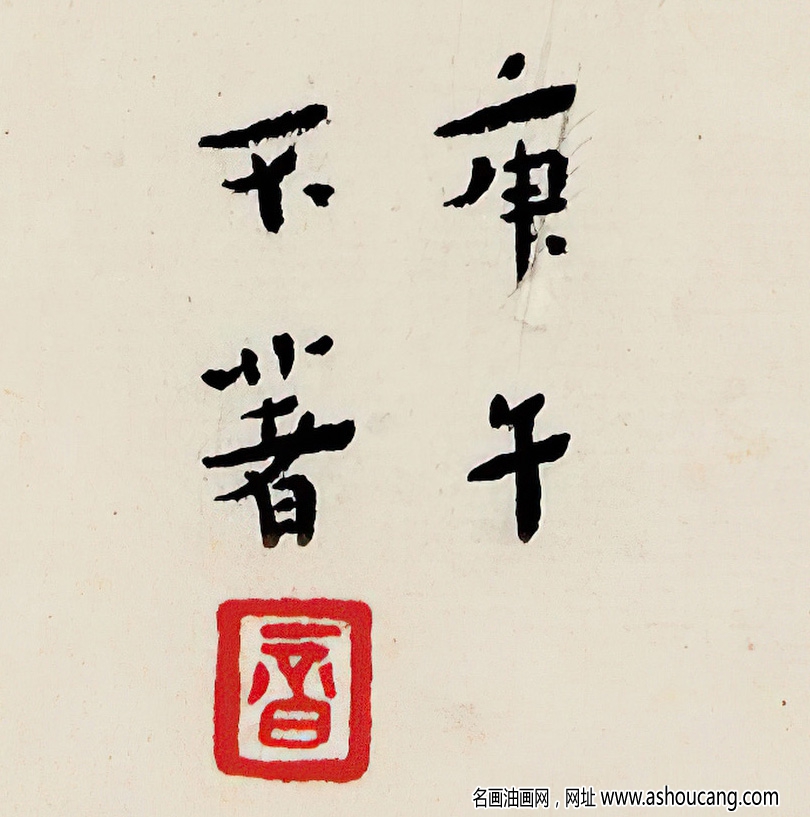 庚午
不著
名画油画网，网址 www.ashoucang.com